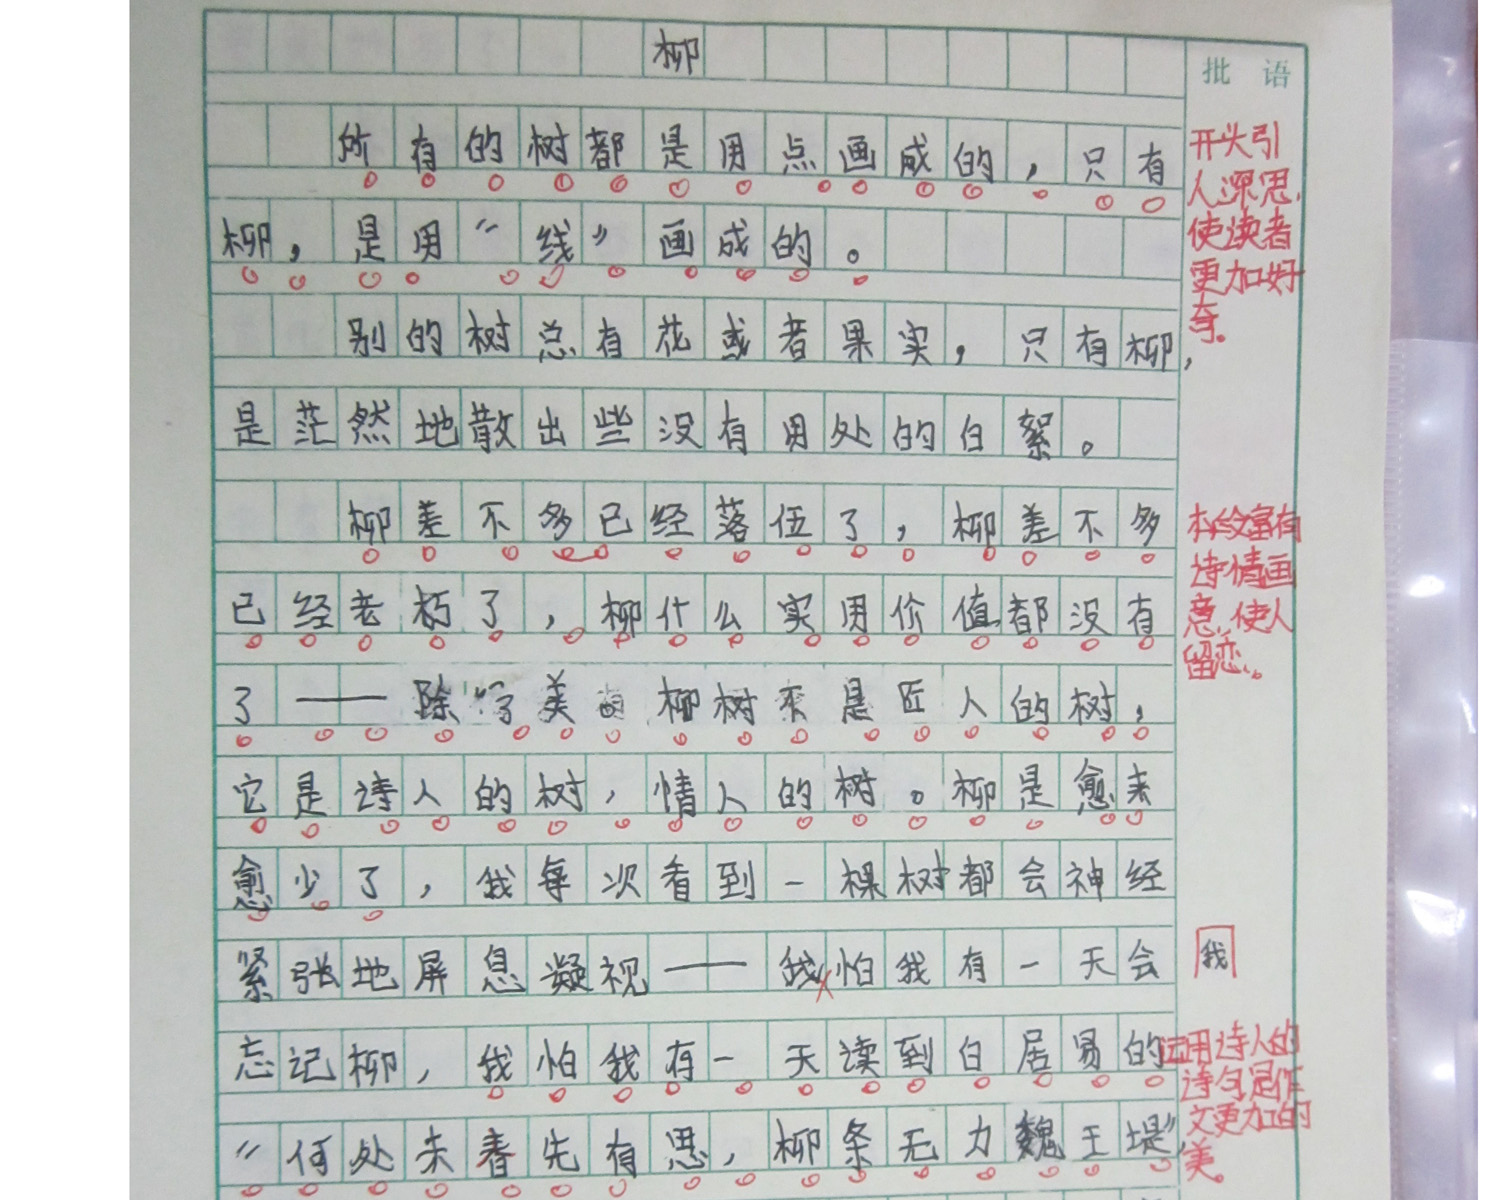 柳
批 语
所有的树都是用点画成的，只有
柳，是用“线”画成的。
别的树总有花或者果实，只有柳，
是茫然地散出些没有用处的白絮。
柳差不多已经落伍了，柳差不多
已经老朽了，柳什么实用价值都没有
了——除了美。柳树不是匠人的树，
它是诗人的树，情人的树。柳是愈来
愈少了，我每次看到一棵树都会神经
紧张地屏息凝视——我怕我有一天会
忘记柳，我怕我有一天读到白居易的
“何处未春先有思，柳条无力魏王堤”，
开头引
人深思，
使读者
更加好
奇。
本文富有
诗情画
意，使人
留恋。
我
运用诗人的
诗句是作
文更加的
美。